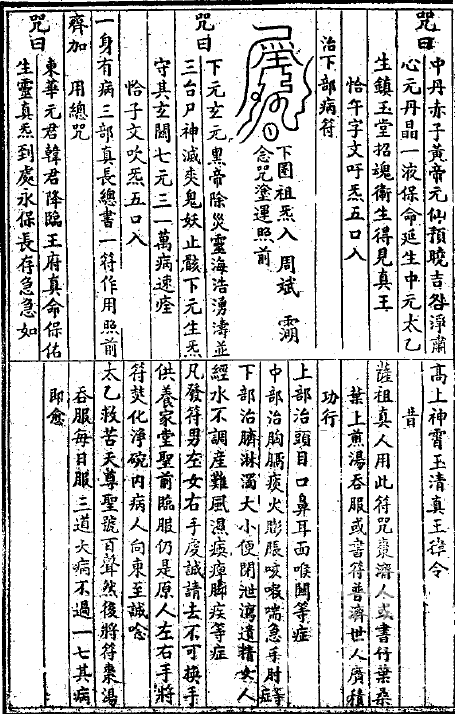 咒曰
中丹赤子黃帝元仙預曉吉咎淨肅
心元丹晶一液保命延生中元太乙
生鎮玉堂招魂衛生得見真王
恰午字文吁炁五口入
治下部病符
下圈祖炁入周斌霸
念咒塗運照前
咒曰
下元玄元黑帝除災靈海浩湧濤並
三台尸神滅爽鬼妖止骸下元生炁
守其玄關七元三一萬病速痊
恰子文吹炁五口入
一身有病三部真長總書一符作用照前
齊加 用總咒
咒曰
東華元君韓君降臨王府真命保佑
生靈真炁到處永保長存急急如
高上神霄玉清真王律令
昔
薩祖真人用此符咒棗濟人或書竹葉桑
葉上煎湯吞服或書符普濟世人廣積
功行
上部治頭目口鼻耳面喉閉等症
中部治胸膈痰火膨脹咳嗽喘急手肘等症
下部治臍淋濁大小便閉泄瀉遺精女人
經水不調產難風濕痰瘴腳疾等症
凡發符男左女右手虔誠請去不可換手
供養家堂聖前臨服仍是原人左右手將
符焚化淨碗內病人向東至誠念
太乙救苦天尊聖號百聲然後將符棗湯
吞服每日服三道大病不過一七其病
即愈